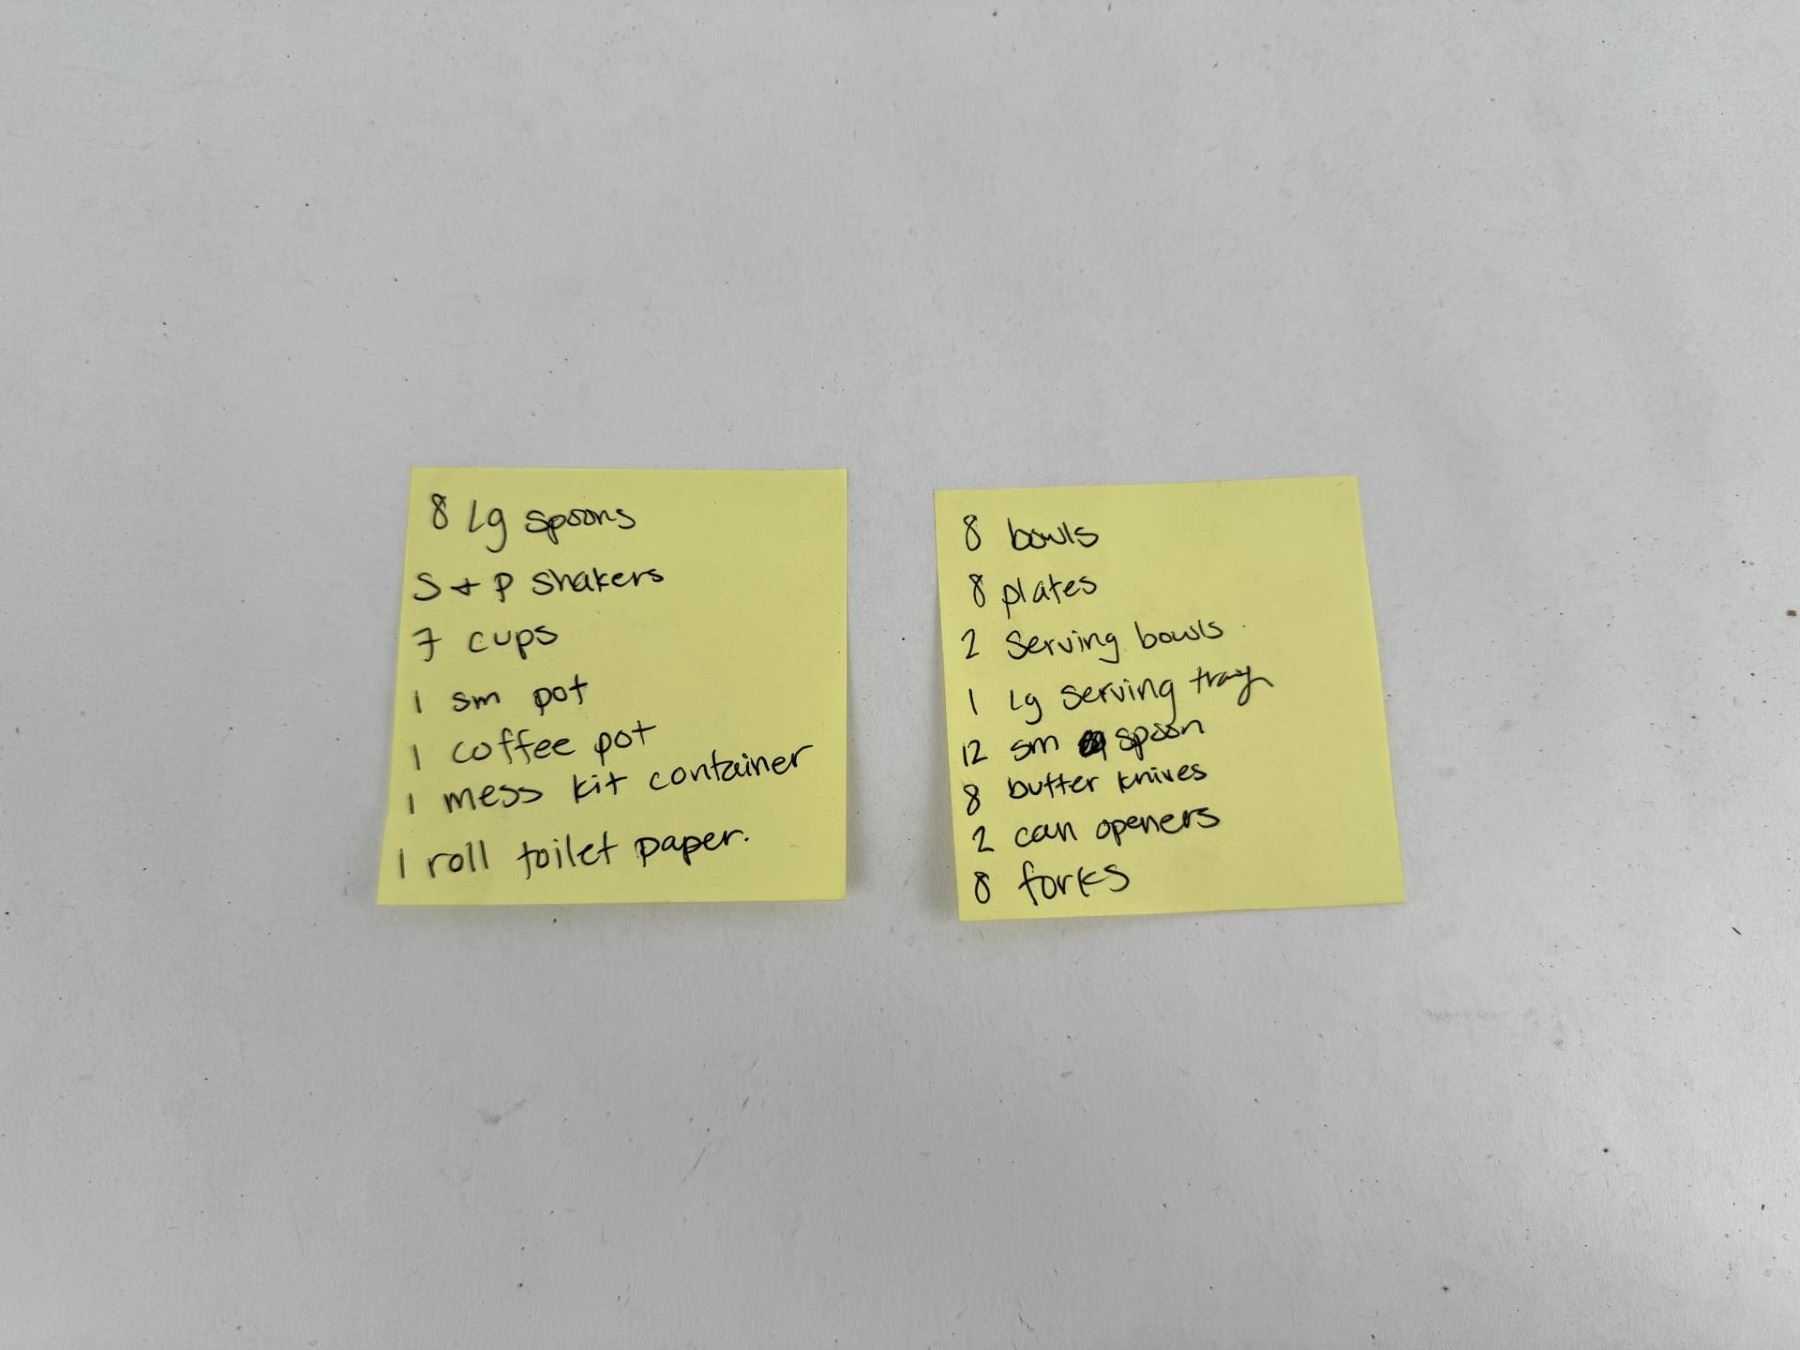 8 Lg spoons
S + P shakers
7 cups
1 sm pot
1 coffee pot
1 mess kit container
1 roll toilet paper.
8 bowls
8 plates
2 Serving bowls
1 lg serving tray
12 sm spoon
8 butter knives
2 can openers
8 forks